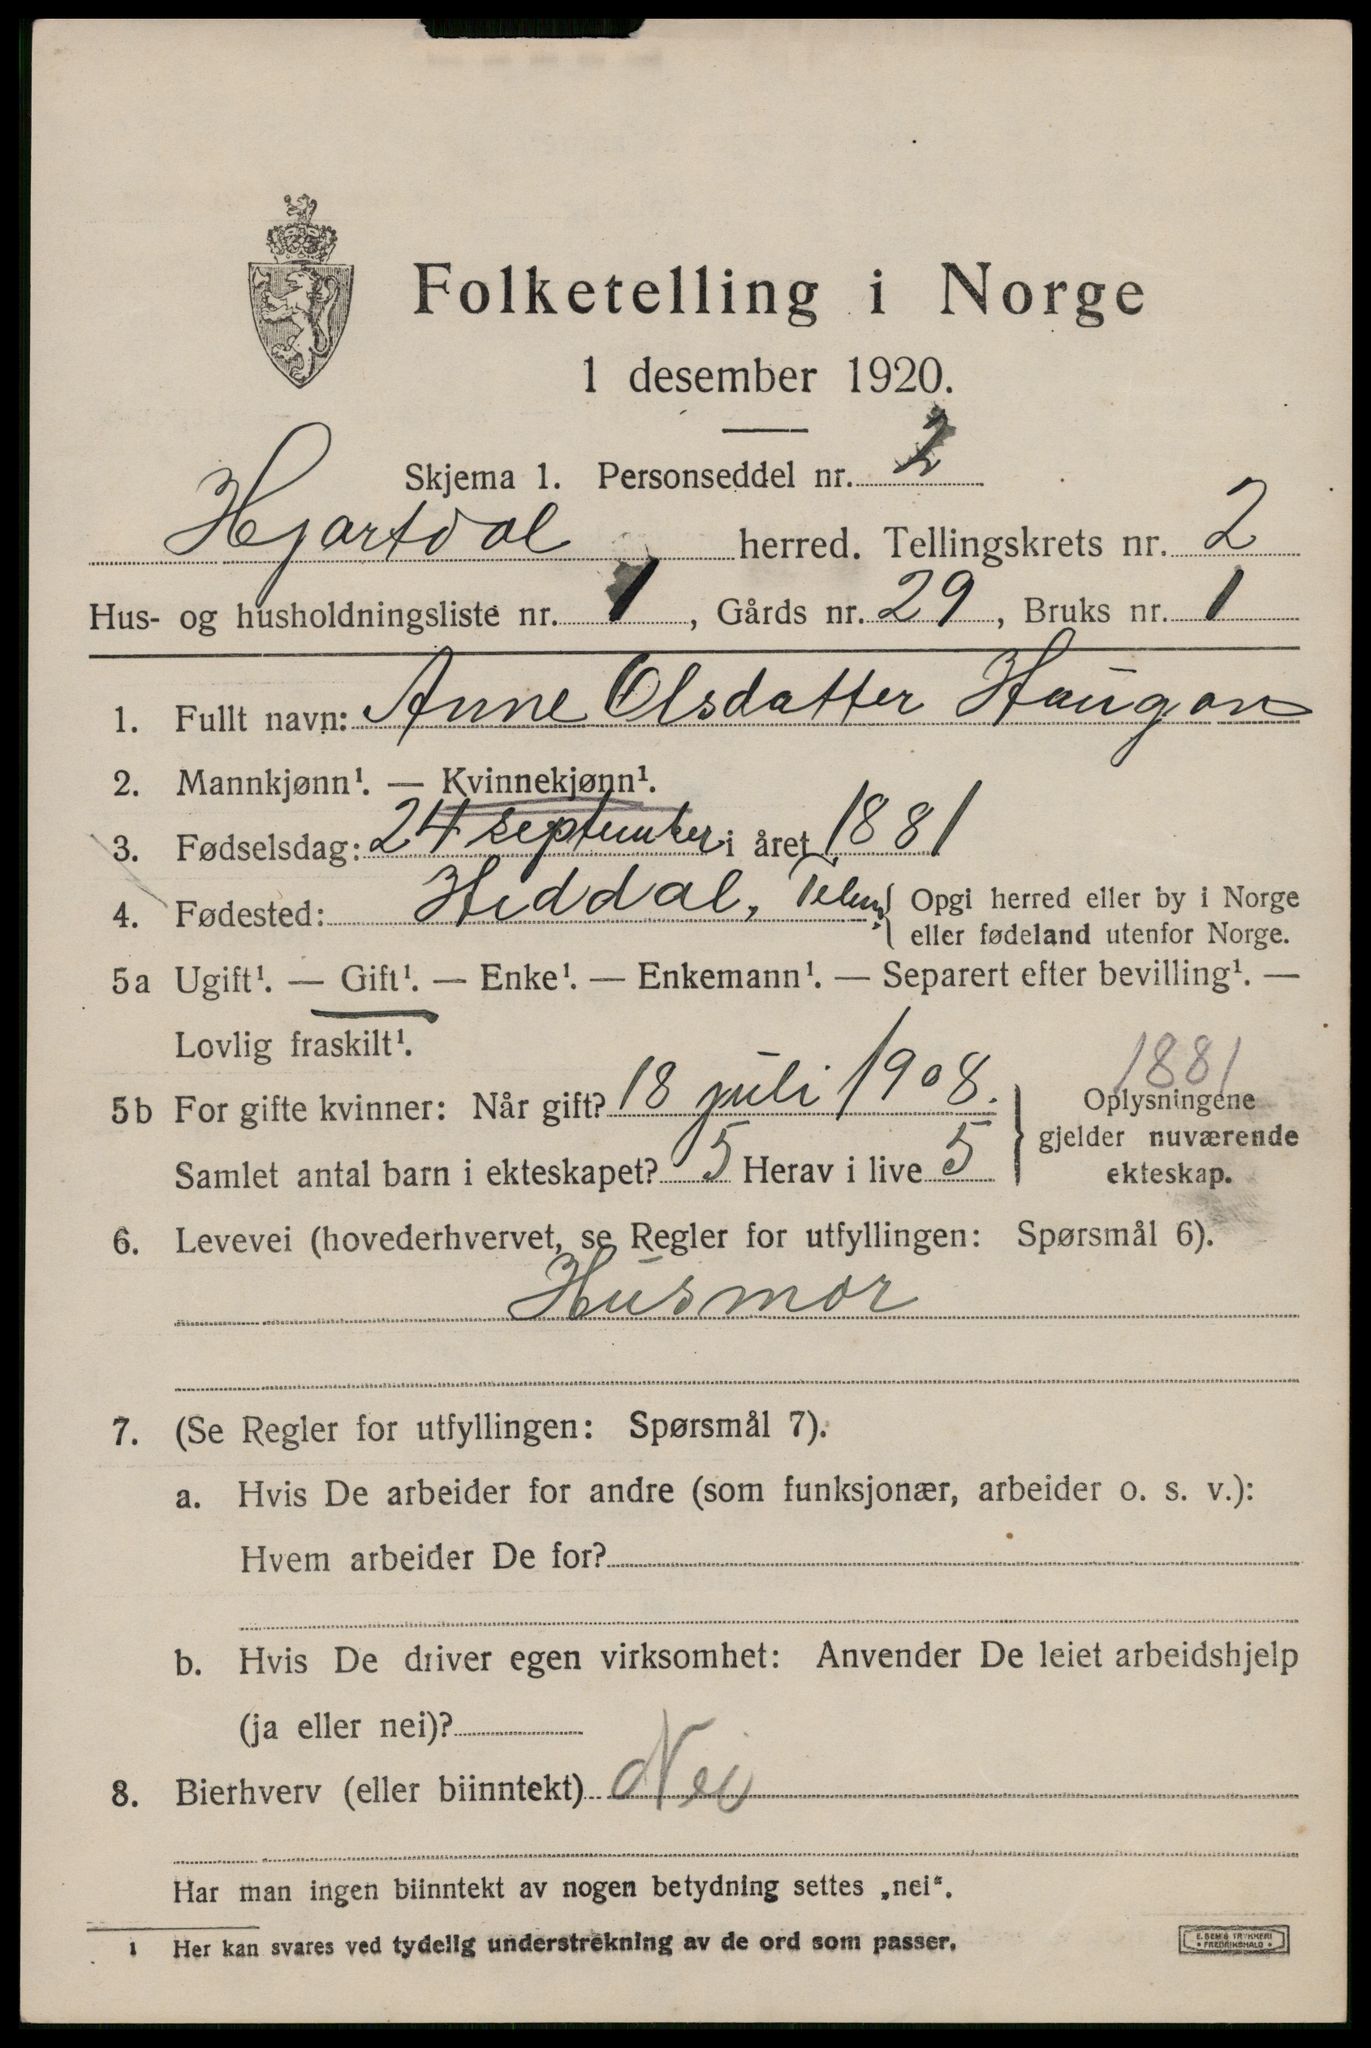 Folketelling i Norge
1 desember 1920.
Skjema 1. Personseddel nr. 2
Hjartdal herred. Tellingskrets nr. 2
Hus- og husholdningsliste nr. 1, Gårds nr. 29, Bruks nr. 1
1. Fullt navn: Anne Olsdatter Haugan
2. Mannkjønn¹. — Kvinnekjønn¹.
3. Fødselsdag: 24 september i året 1881
4. Fødested: Hiddal, Telem. { Opgi herred eller by i Norge
eller fødeland utenfor Norge.
5a Ugift¹. — Gift¹. — Enke¹. — Enkemann¹. — Separert efter bevilling¹. —
Lovlig fraskilt¹.
1881
5b For gifte kvinner: Når gift? 18 juli 1908. } Oplysningene
gjelder nuværende
Samlet antal barn i ekteskapet? 5 Herav i live 5 ekteskap.
6. Levevei (hovederhvervet, se Regler for utfyllingen: Spørsmål 6).
Husmor
7. (Se Regler for utfyllingen: Spørsmål 7).
a. Hvis De arbeider for andre (som funksjonær, arbeider o. s. v.):
Hvem arbeider De for?
b. Hvis De driver egen virksomhet: Anvender De leiet arbeidshjelp
(ja eller nei)?
8. Bierhverv (eller biinntekt) Nei
Har man ingen biinntekt av nogen betydning settes „nei“.
1 Her kan svares ved tydelig understrekning av de ord som passer.
E. SEM'S TRYKKERI
• FREDRIKSHALD •